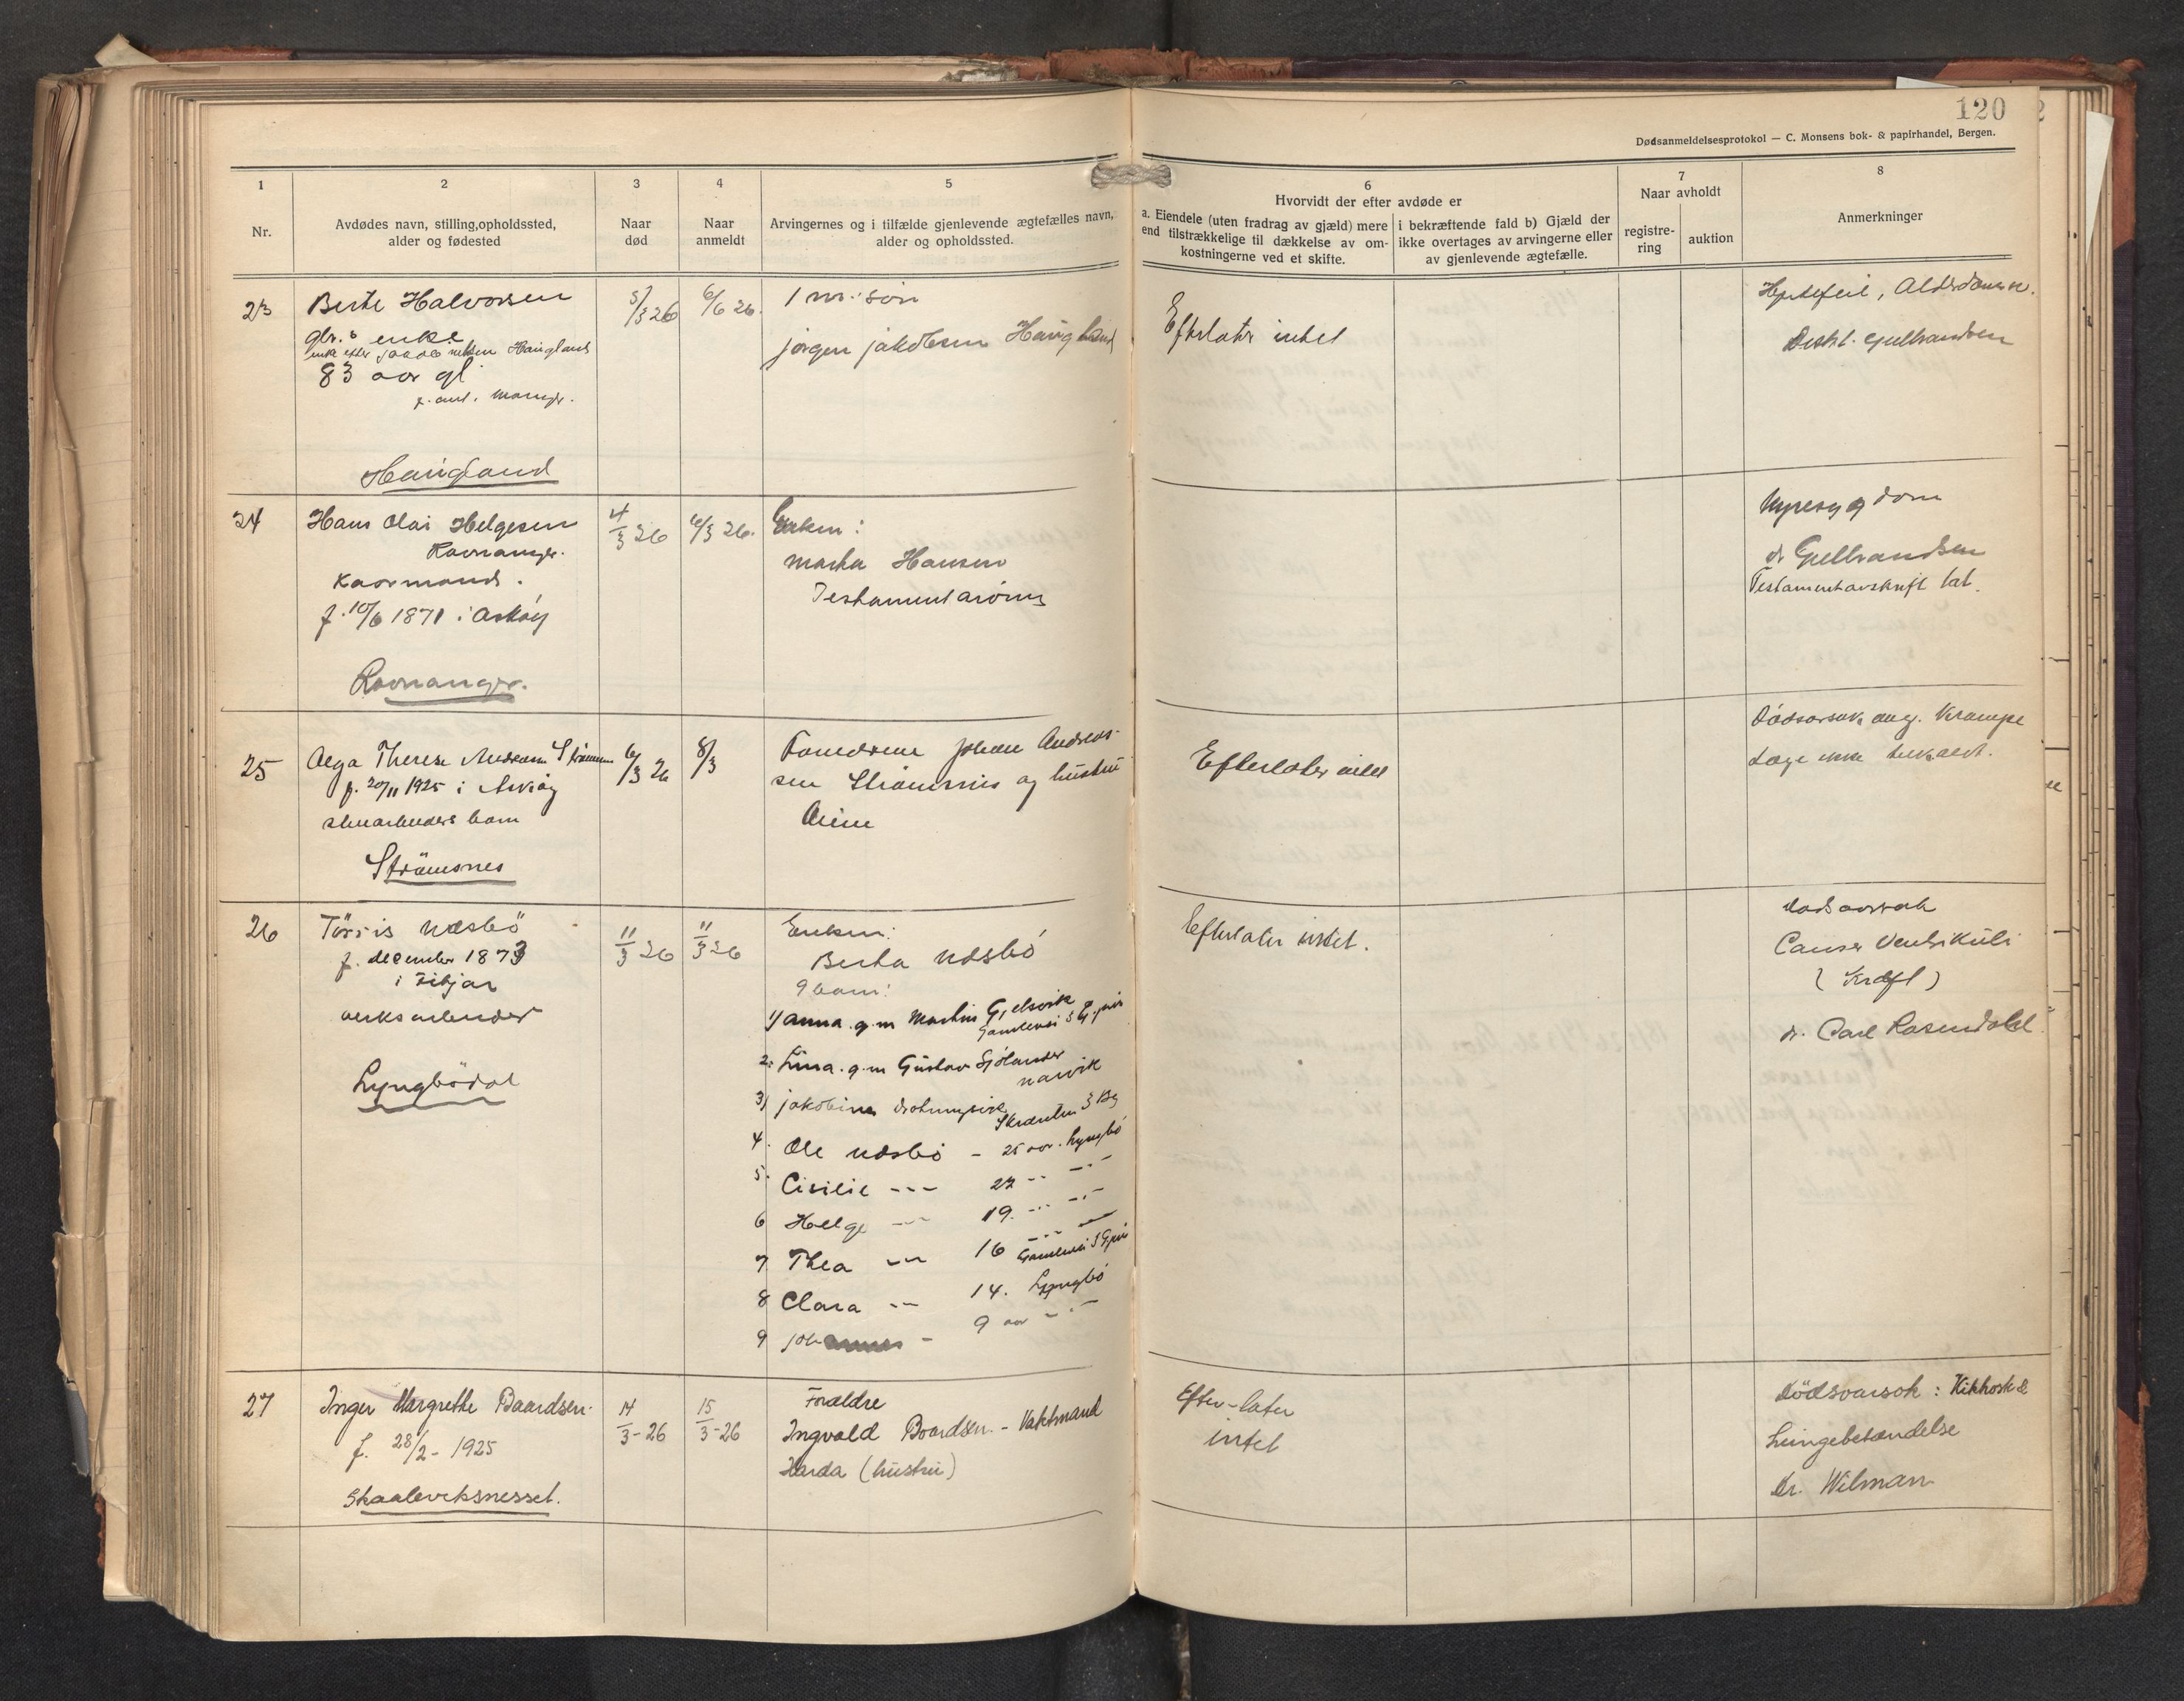 120
Dødsanmeldelsesprotokol — C. Monsens bok- & papirhandel, Bergen.
1
Nr.
2
Avdødes navn, stilling, opholdssted,
alder og fødested
3
Naar
død
4
Naar
anmeldt
5
Arvingernes og i tilfælde gjenlevende ægtefælles navn,
alder og opholdssted.
6
Hvorvidt der efter avdøde er
a. Eiendele (uten fradrag av gjæld) mere
end tilstrækkelige til dækkelse av om-
kostningerne ved et skifte.
i bekræftende fald b) Gjæld der
ikke overtages av arvingerne eller
av gjenlevende ægtefælle.
7
Naar avholdt
registre-
ring
auktion
8
Anmerkninger
23
Berte Halvorsen
gbr.s enke
enke efter Haugland
83 aar gl
Manger.
Haugland
5/3 26
6/6 26.
1 m: søn
Jørgen Jakobsen Haugland
Efterlater intet
Hjertefeil, Alderdomssv.
Distl. Gulbrandsen
24
Hans Olai Helgesen
Ravnanger.
Kaarmand.
f. 10/6 1871 i Askøy
Ravnanger.
4/3 26
6/3 26.
Enken:
Marta Hansen
Testamentarving
Nyresygdom
dr Gulbrandsen
Testamentavskrift tat.
25
Aega Therese Andreassen Strømsnes
f. 20/11 1925 i Askøy
stenarbeiders barn
Strömsnes
6/3 26
8/3
Forældrene Johan Andreas-
sen Strömsnes og hustru
Efterlater intet
Dødsarsak ang. Krampe
Læge ikke tilkaldt.
26
Törris Næsbö
f. december 1873
i Fitjar
verksarbeider
Lyngbödal
11/3 26
11/3 26
Enken:
Berta Næsbö
9 barn:
1) Anna g.m Martin Gjelsvik
2: Lina. g.m Gustav Sjölander
Narvik
3) Jakobine
4. Ole Næsbö - 25 aar. Lyngbö
5. Cisilie --- 22 -- -"-
6 Helge --- 19. --- -"-
7 Thea --- 16
8 Clara -- 14. Lyngbö
9 Johannes - 9 aar -"-
Efterlater intet.
Dødsaarsak
Cancer Ventrikuli
(Kræft)
dr. Carl Rosendahl
27
Inger Margrethe Baardsen.
f. 28/2 - 1925
Skaaleviksnesset.
14/3-26
15/3-26
Forældre
Ingvald Baardsen. - Vaktmand
Harda (hustru)
Efter-later
intet
Dödsaarsak: Kikhoste
Lungebetændelse
Dr. Wilman